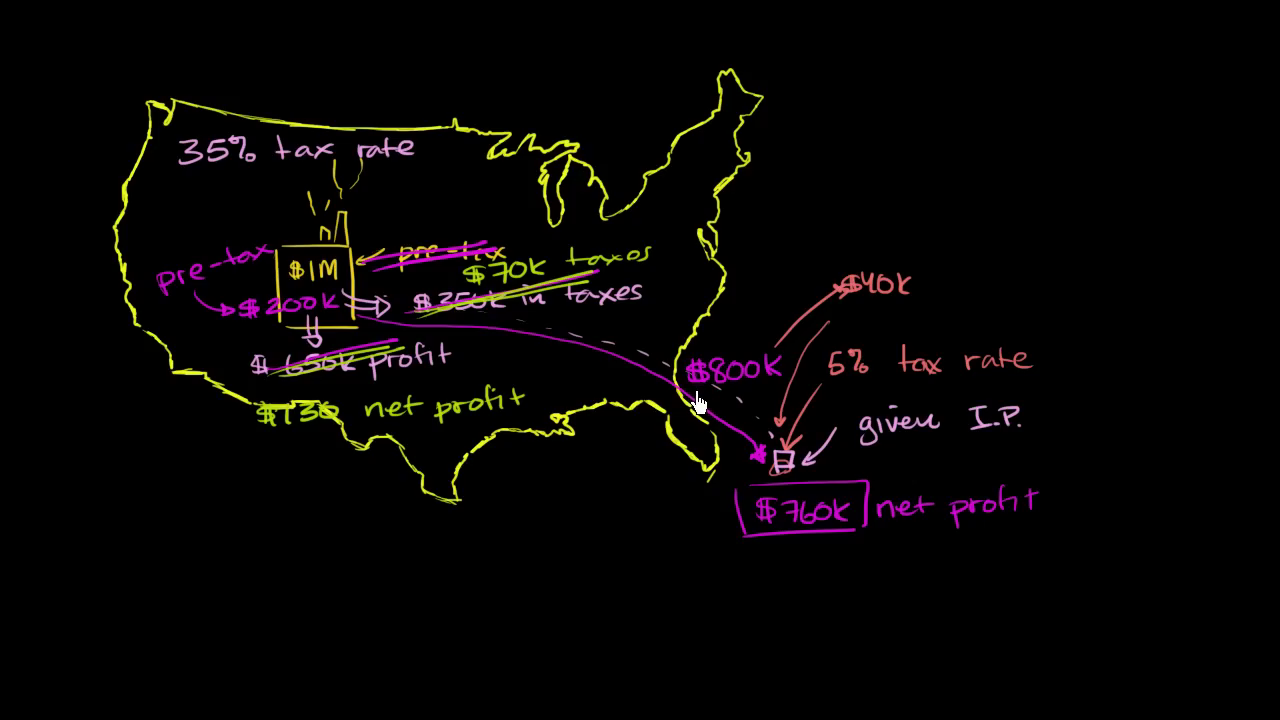 35% tax rate
pre-tax
pre-tax
$1M
$70k taxes
$200k
$350k in taxes
$650k profit
$130 net profit
$800k
$40k
5% tax rate
given I.P.
$760k net profit